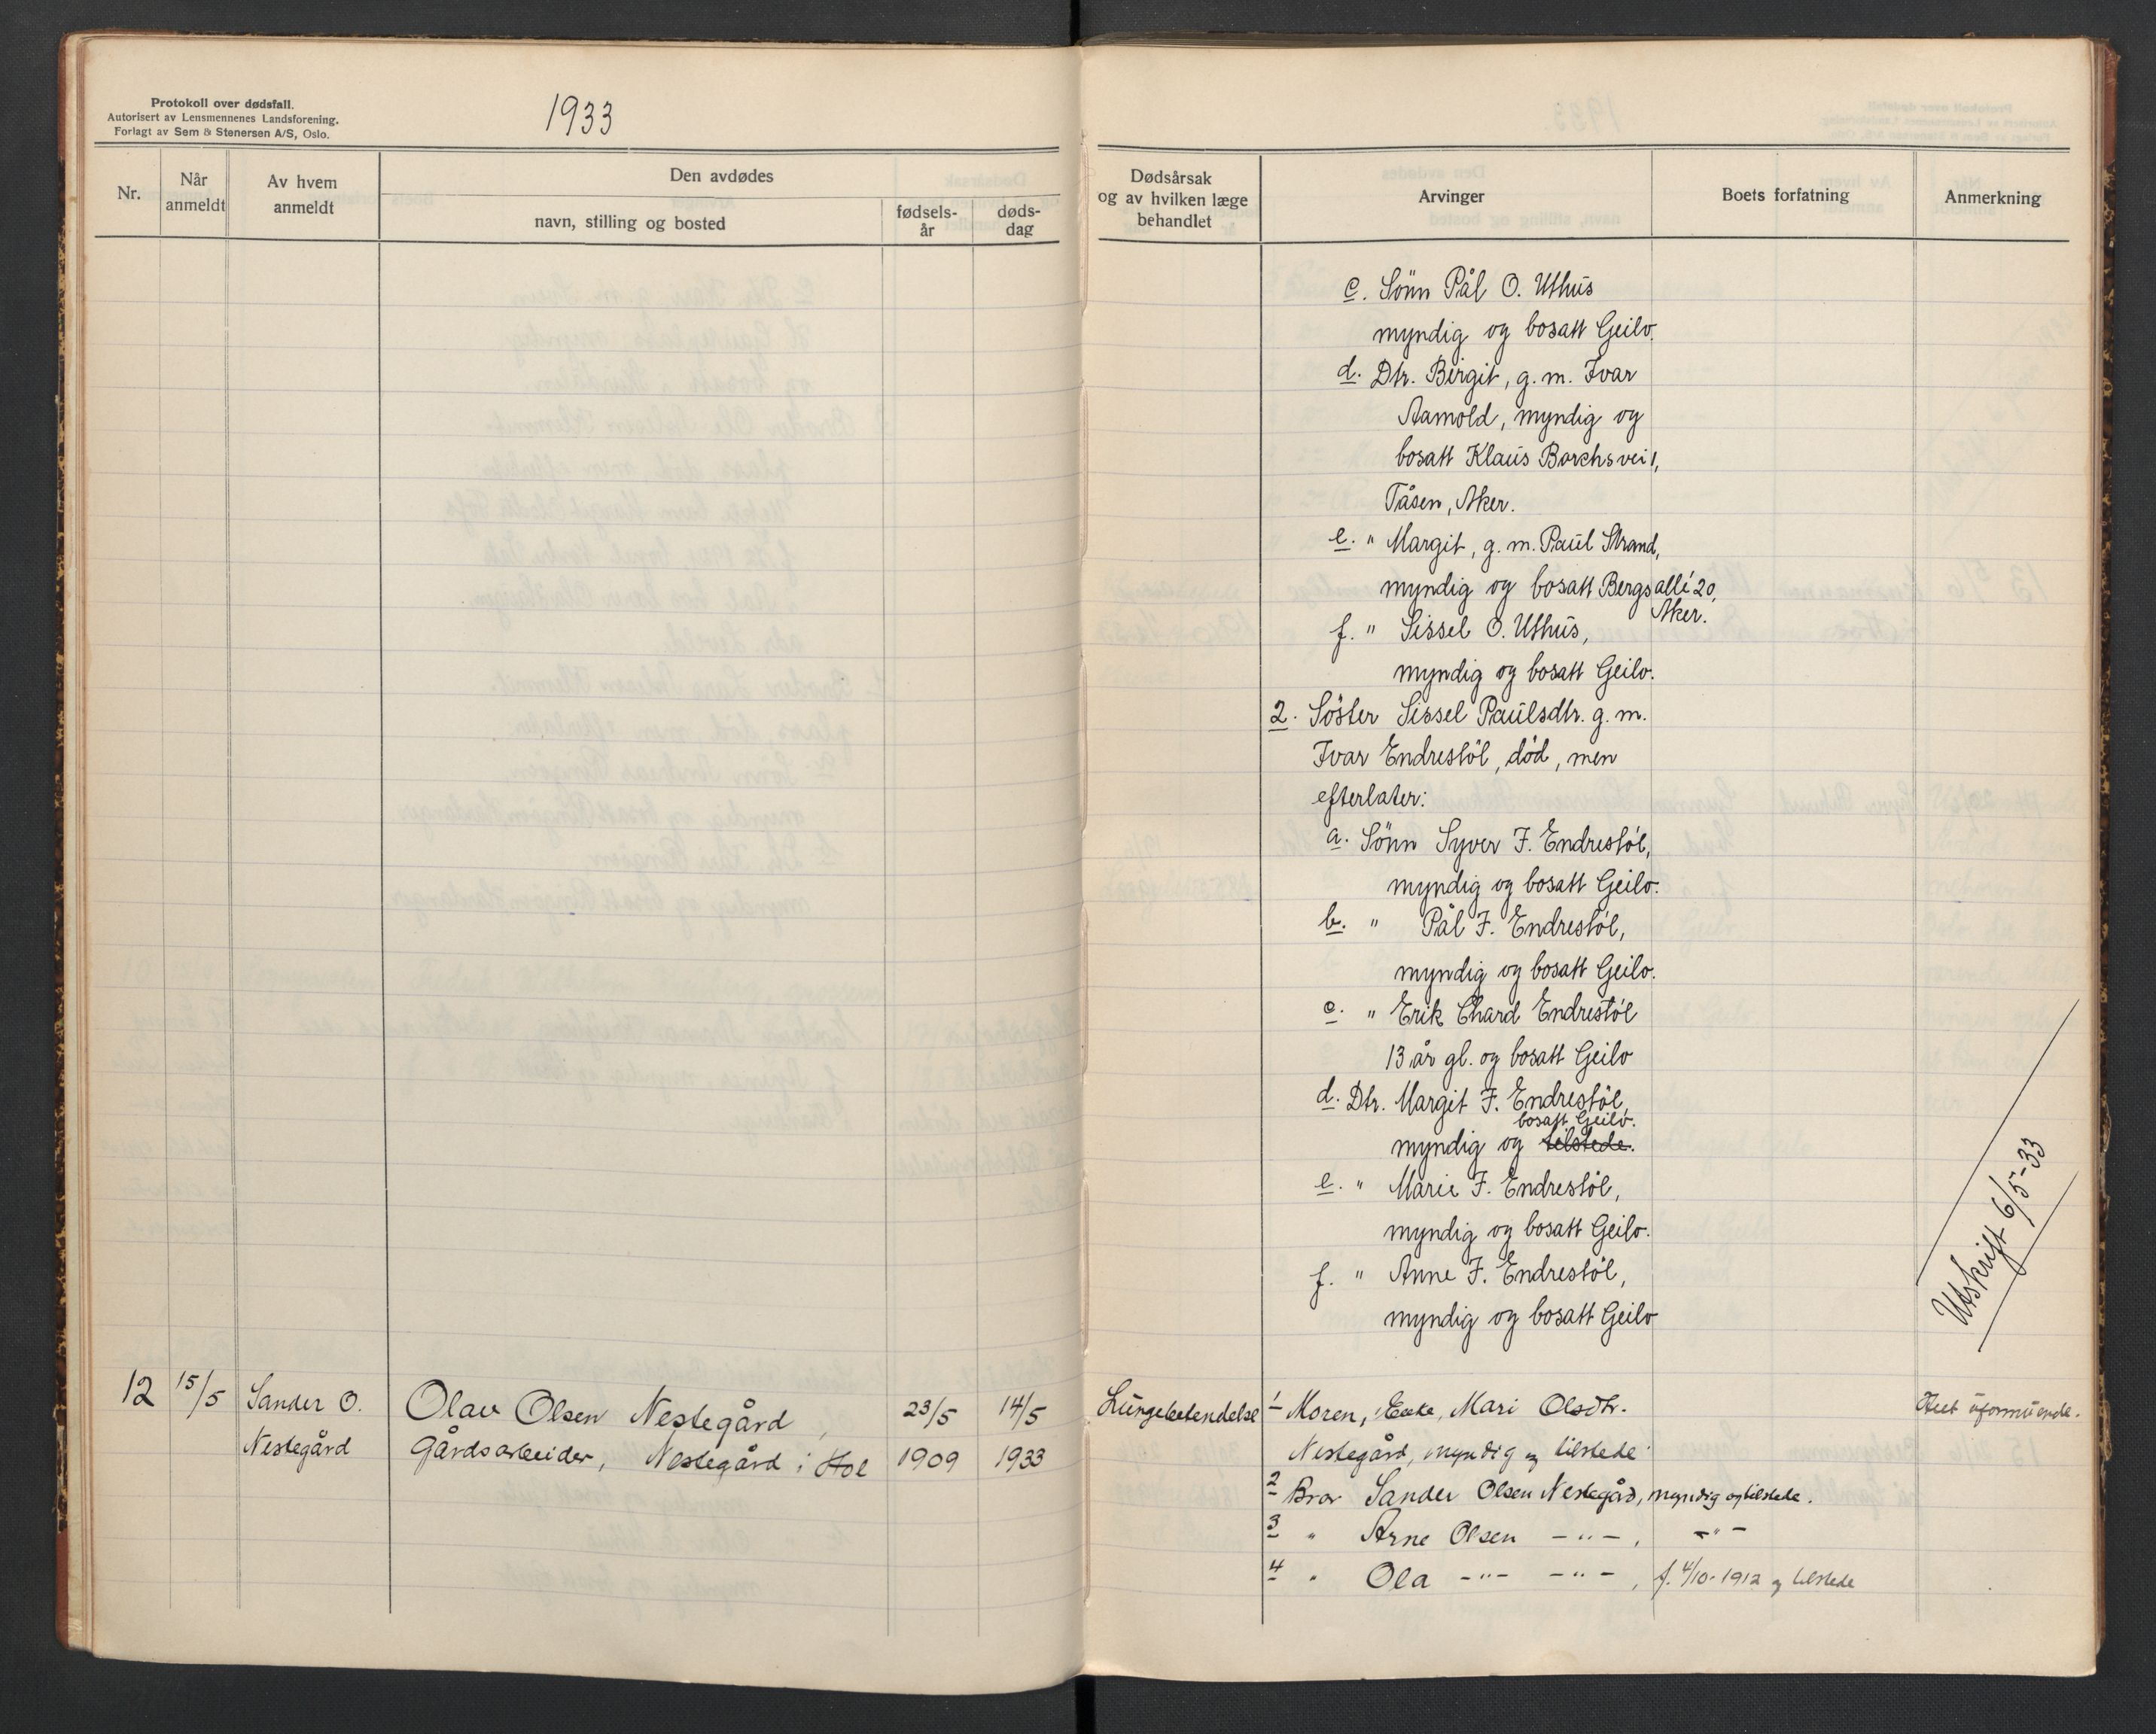 Protokoll over dødsfall.
Autorisert av Lensmennenes Landsforening.
Forlagt av Sem & Stenersen A/S, Oslo.
1933
Nr.
Når anmeldt
Av hvem anmeldt
Den avdødes
navn, stilling og bosted
fødsels-år
døds-dag
Dødsårsak
og av hvilken læge
behandlet
Arvinger
Boets forfatning
Anmerkning
c. Sönn Pål O. Uthus
myndig og bosatt Geilo.
d. Dtr. Birgit, g. m. Ivar
Aamold, myndig og
bosatt Klaus Borchsvei 1,
Tåsen, Aker.
e. " Margit, g. m. Paul Strand,
myndig og bosatt Bergsalle 20,
Aker.
f. " Sissel O. Uthus,
myndig og bosatt Geilo.
2. Söster Sissel Paulsdtr. g. m.
Ivar Endrestöl, död, men
efterlater:
a. Sönn Syver I. Endrestöl,
myndig og bosatt Geilo.
b. " Pål I. Endrestöl,
myndig og bosatt Geilo.
c. " Erik Edvard Endrestöl
13 år gl. og bosatt Geilo
d. Dtr. Margit I. Endrestöl,
bosatt Geilo.
myndig og tilstede.
e. " Marie I. Endrestöl,
myndig og bosatt Geilo.
f. " Anne I. Endrestöl,
myndig og bosatt Geilo
Utskrift 6/5-33
12 15/5 Sander O. Olav Olsen Nestegård, 23/5 14/5 Lungebetendelse 1 Moren, Enke, Mari Olsdtr. Helt uformuende.
Nestegård Gårdsarbeider, Nestegård i Hol 1909 1933 Nestegård, myndig og tilstede.
2 Bror Sander Olsen Nestegård, myndig og tilstede.
3 " Arne Olsen -"-, -"-
4 " Ola -"- -"-, f. 4/10-1912 og tilstede